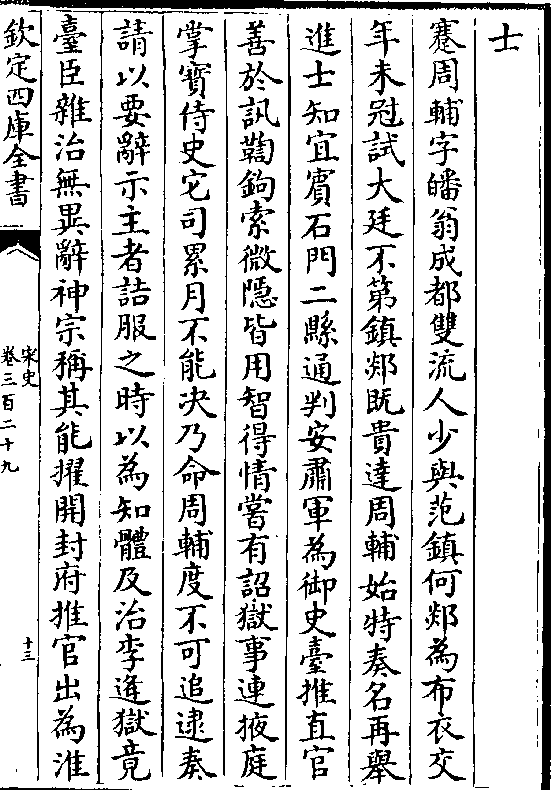 士
蹇周輔字皤翁成都雙流人少與范鎮何郯為布衣交
年未冠試大廷不第鎮郯既貴達周輔始特奏名再舉
進士知宜賓石門二縣通判安肅軍為御史臺推直官
善於訊鞫鉤索微隱皆用智得情嘗有詔獄事連掖庭
掌寶侍史它司累月不能决乃命周輔度不可追逮奏
請以要辭示主者詰服之時以為知體及治李逄獄竟
臺臣雜治無異辭神宗稱其能擢開封府推官出為淮
欽定四庫全書
宋史
卷三百二十九
十三